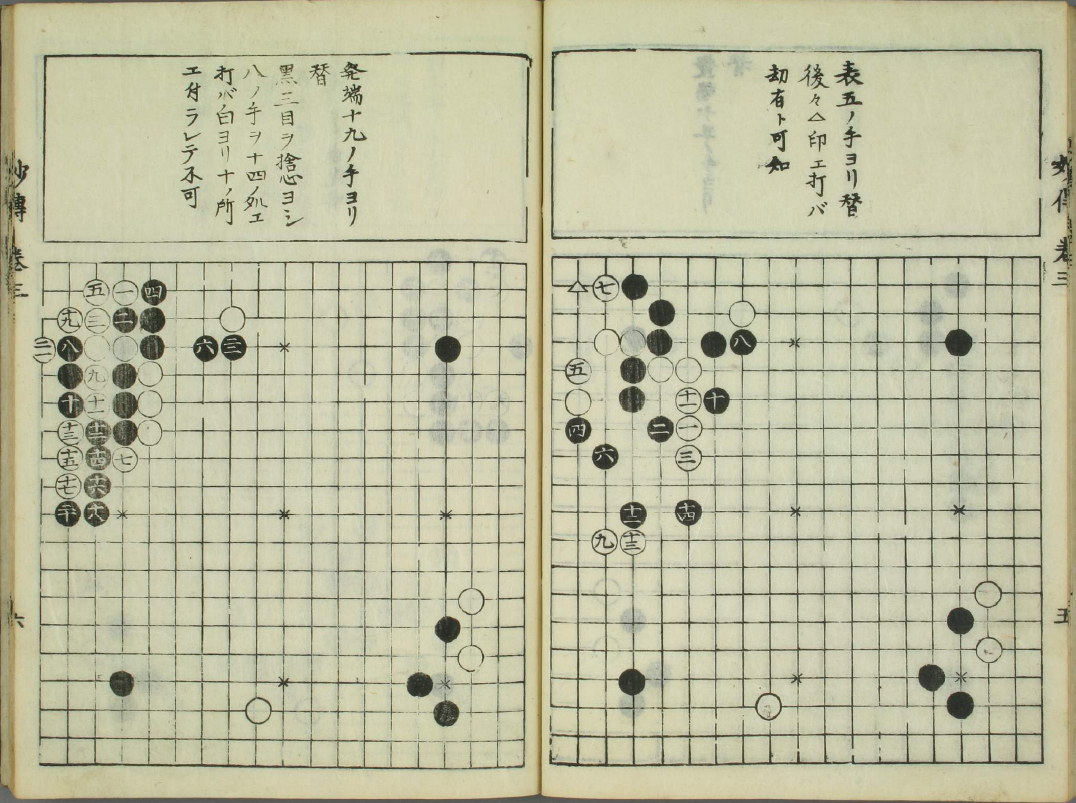 表五ノ手ヨリ替
後々△印エ打バ
劫有ト可知
七
八
五
十一
十
四
二
一
六
三
十二
十四
九
十三
五
発端十九ノ手ヨリ
替
黒三目ヲ捨心ヨシ
八ノ手ヲ十四ノ処エ
打バ白ヨリ十ノ所
エ付ラレテ不可
五
一
四
九
三
二
八
六
三
九
十
十一
十三
十二
十五
十四
七
十七
十六
二十
十八
妙傳 巻三
六